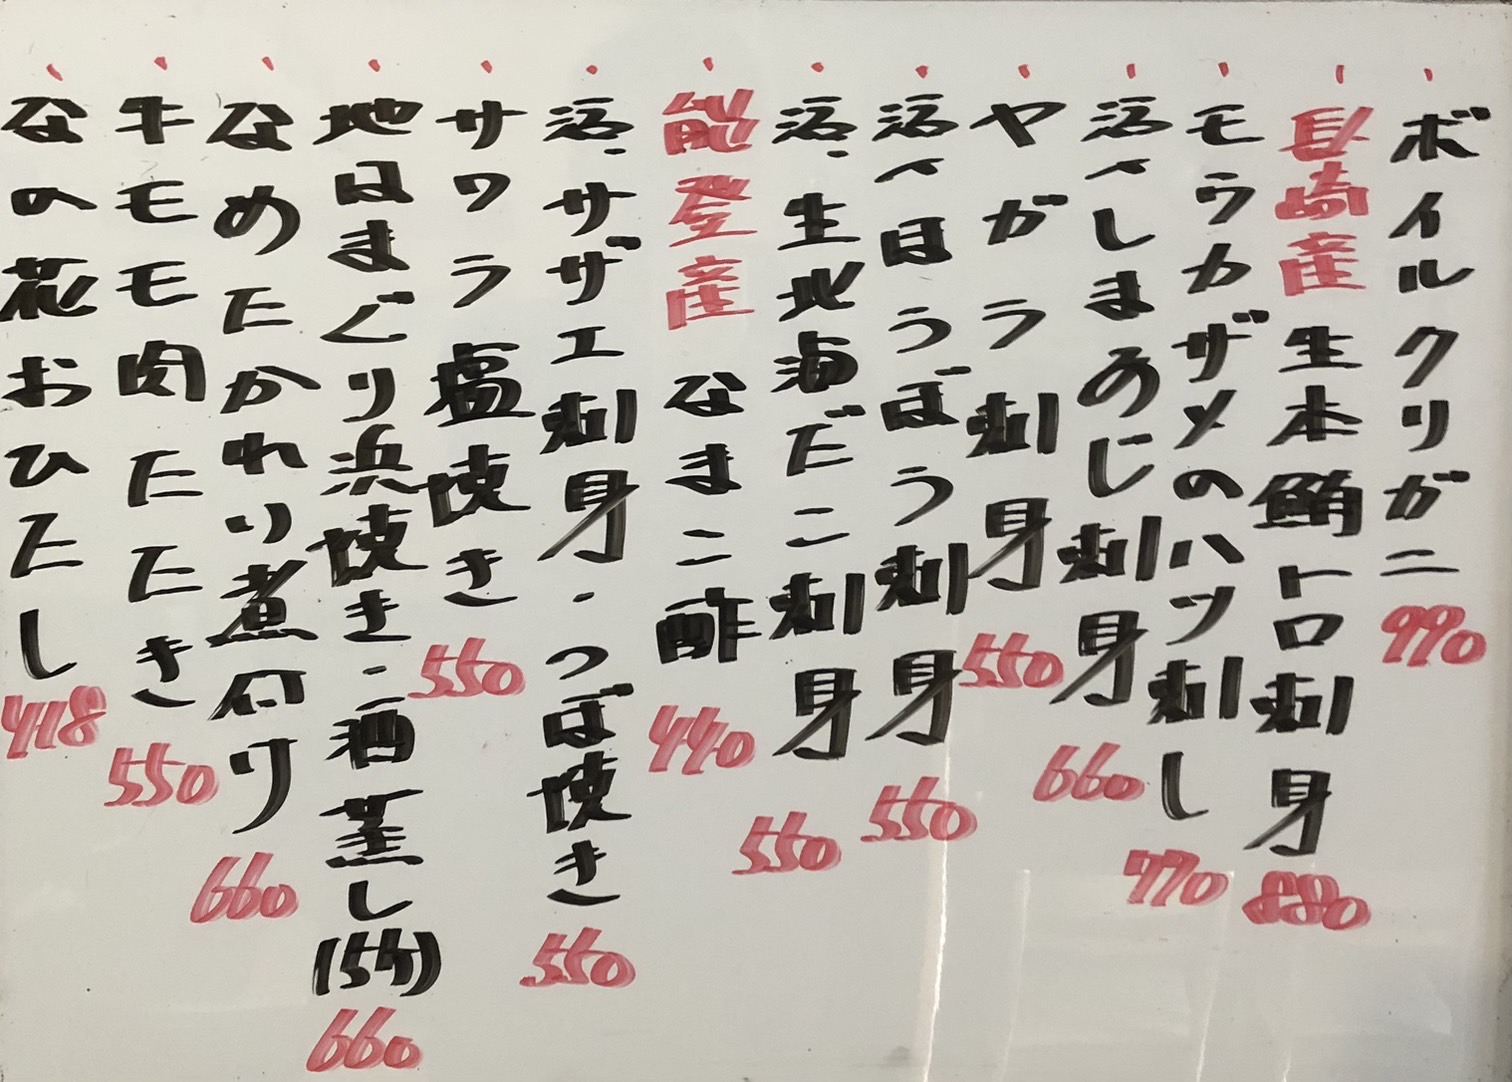 ボイルクリガニ 990
長崎産 生本鮪トロ刺身 880
モウカザメのハツ刺し 770
活〆しまあじ刺身 660
ヤガラ刺身 550
活〆ほうぼう刺身 550
活・生北海だこ刺身 550
能登産 なまこ酢 440
活・サザエ刺身・つぼ焼き 550
サワラ塩焼き 550
地はまぐり浜焼き・酒蒸し(5ケ) 660
なめたかれい煮付け 660
牛モモ肉たたき 550
なの花おひたし 418